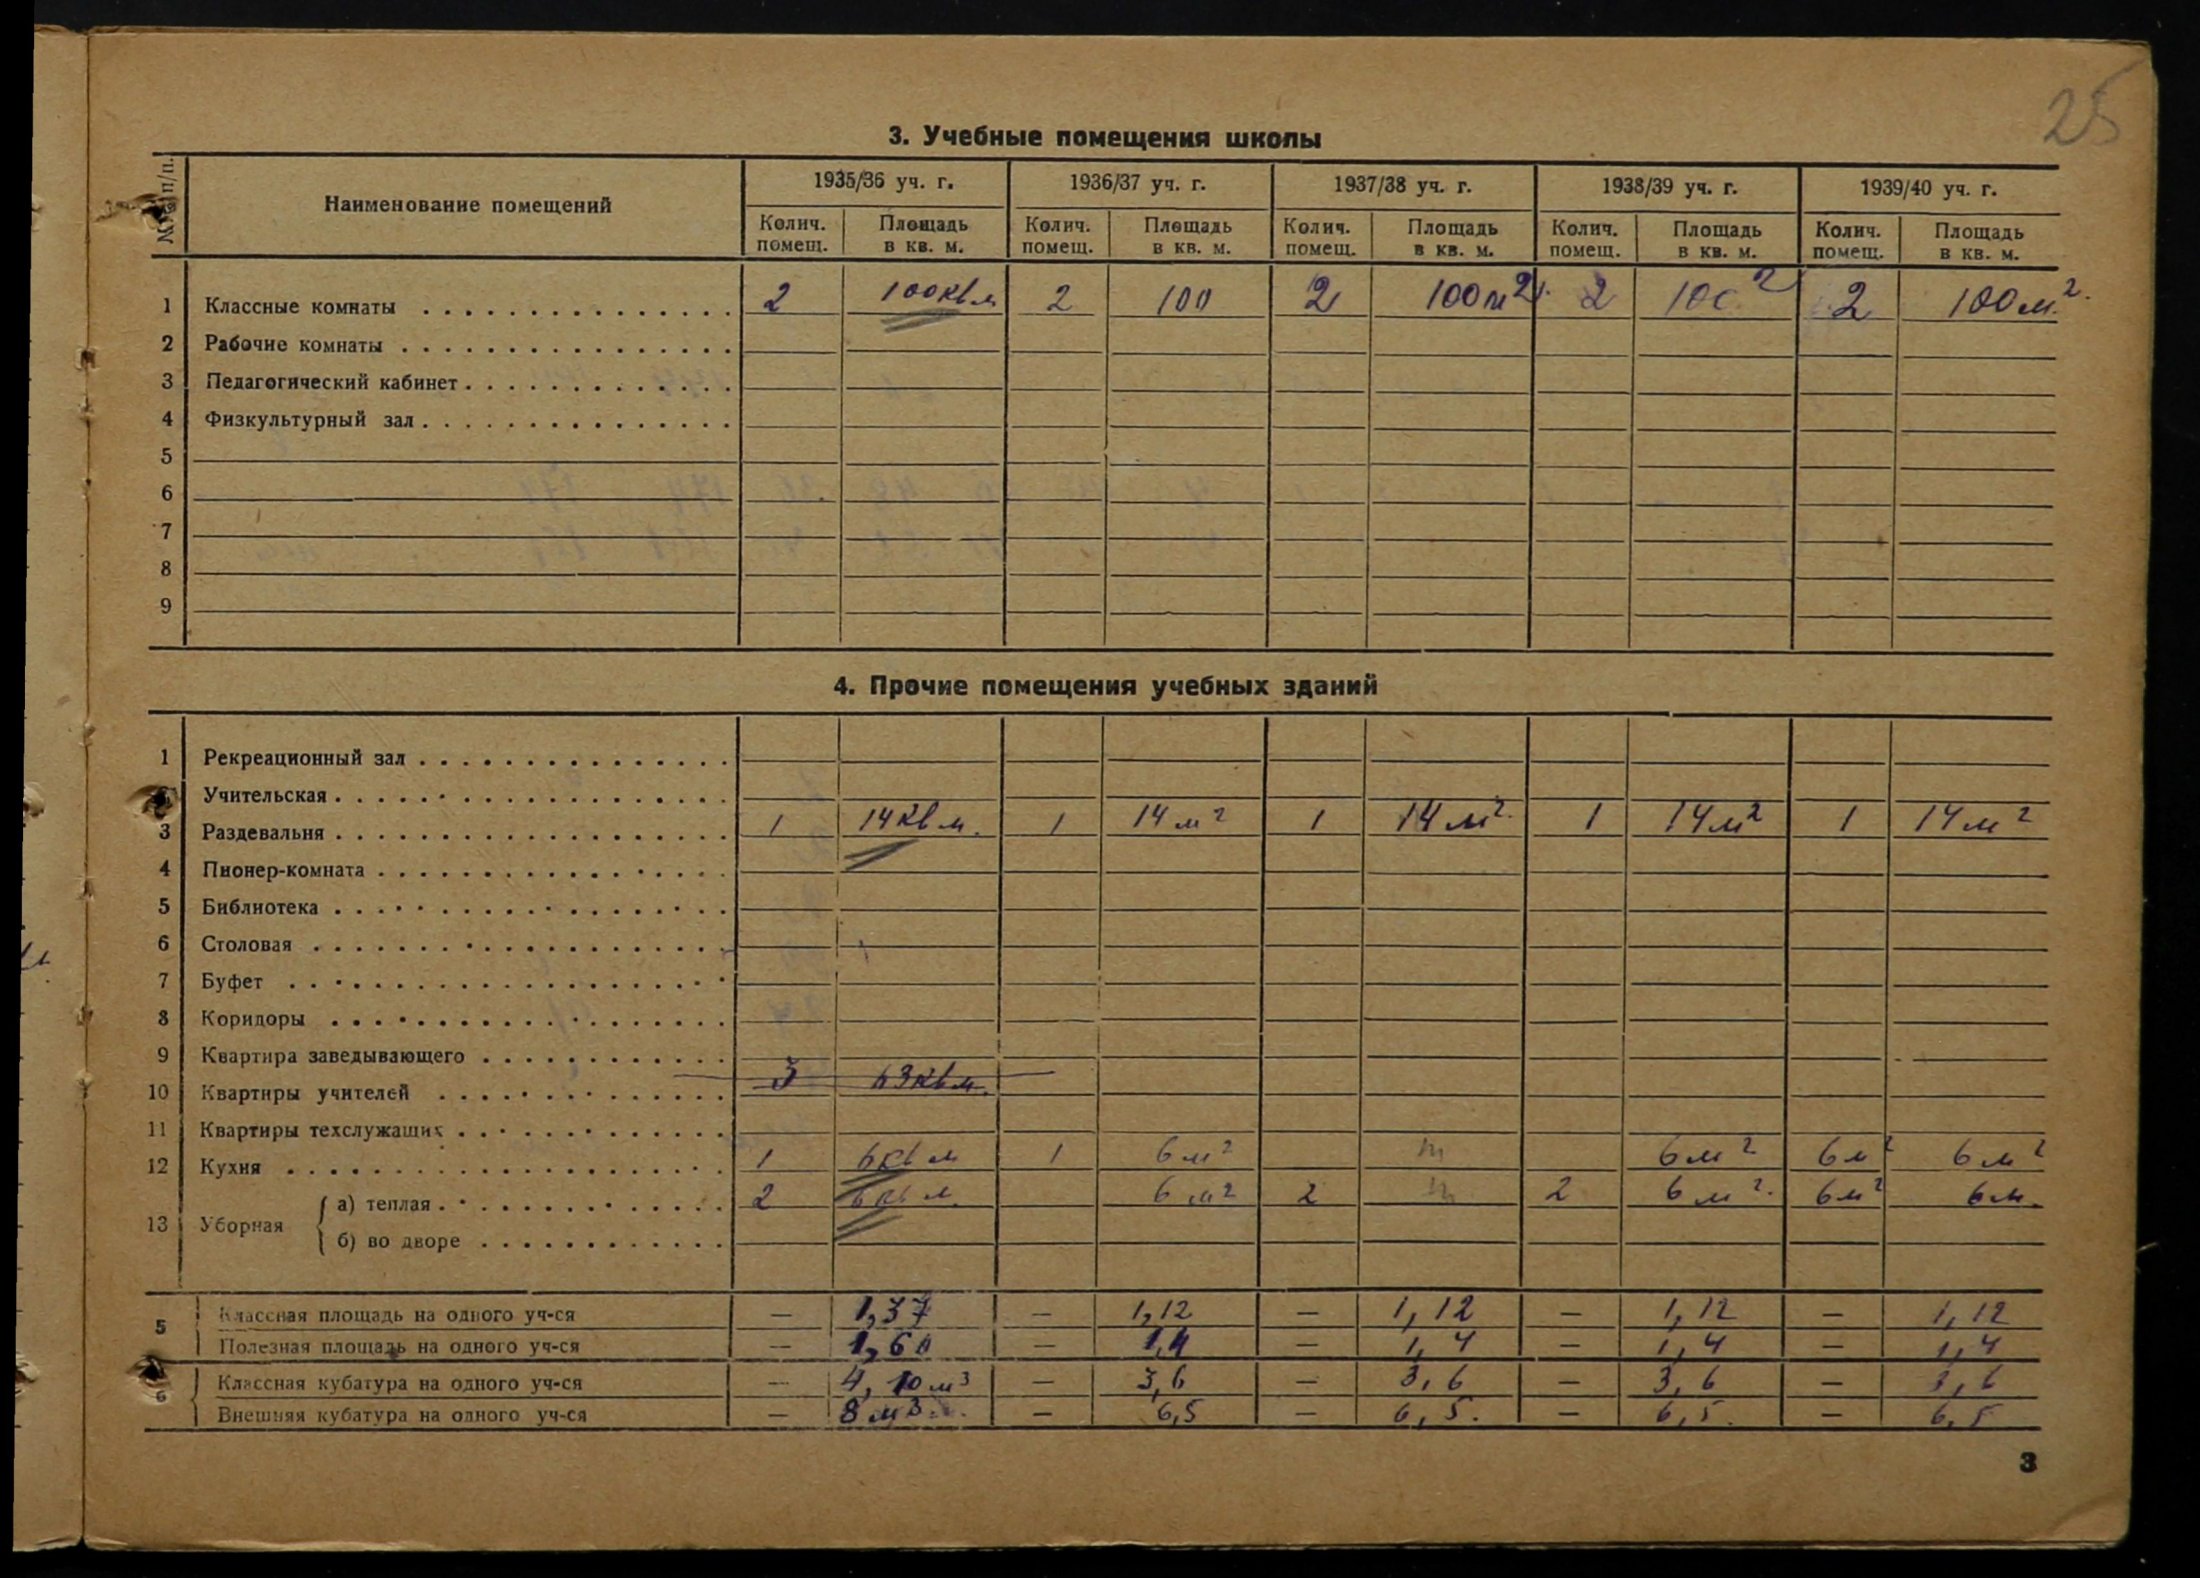 25
3. Учебные помещения школы
№№ п/п. Наименование помещений 1935/36 уч. г. 1936/37 уч. г. 1937/38 уч. г. 1938/39 уч. г. 1939/40 уч. г.
Колич. помещ. Площадь в кв. м. Колич. помещ. Площадь в кв. м. Колич. помещ. Площадь в кв. м. Колич. помещ. Площадь в кв. м. Колич. помещ. Площадь в кв. м.
1 Классные комнаты 2 100 кв м 2 100 2 100 м2. 2 100 2 2 100 м2.
2 Рабочие комнаты
3 Педагогический кабинет
4 Физкультурный зал
5
6
7
8
9
4. Прочие помещения учебных зданий
1 Рекреационный зал
Учительская
3 Раздевальня 1 14 кв м. 1 14 м2 1 14 м2. 1 14 м2 1 14 м2
4 Пионер-комната
5 Библиотека
6 Столовая
7 Буфет
8 Коридоры
9 Квартира заведывающего
10 Квартиры учителей 3 63 кв м.
11 Квартиры техслужащих
12 Кухня 1 6 кв м 1 6 м2 6 м2 6 м2 6 м2
13 Уборная а) теплая 2 6 кв м. 6 м2 2 2 6 м2. 6 м2 6 м.
б) во дворе
5 Классная площадь на одного уч-ся — 1,37 — 1,12 — 1,12 — 1,12 — 1,12
Полезная площадь на одного уч-ся — 1,60 — 1,4 — 1,4 — 1,4 — 1,4
6 Классная кубатура на одного уч-ся — 4,10 м3 — 3,6 — 3,6 — 3,6 — 3,6
Внешняя кубатура на одного уч-ся — 8 м3 — 6,5 — 6,5. — 6,5. — 6,5
3